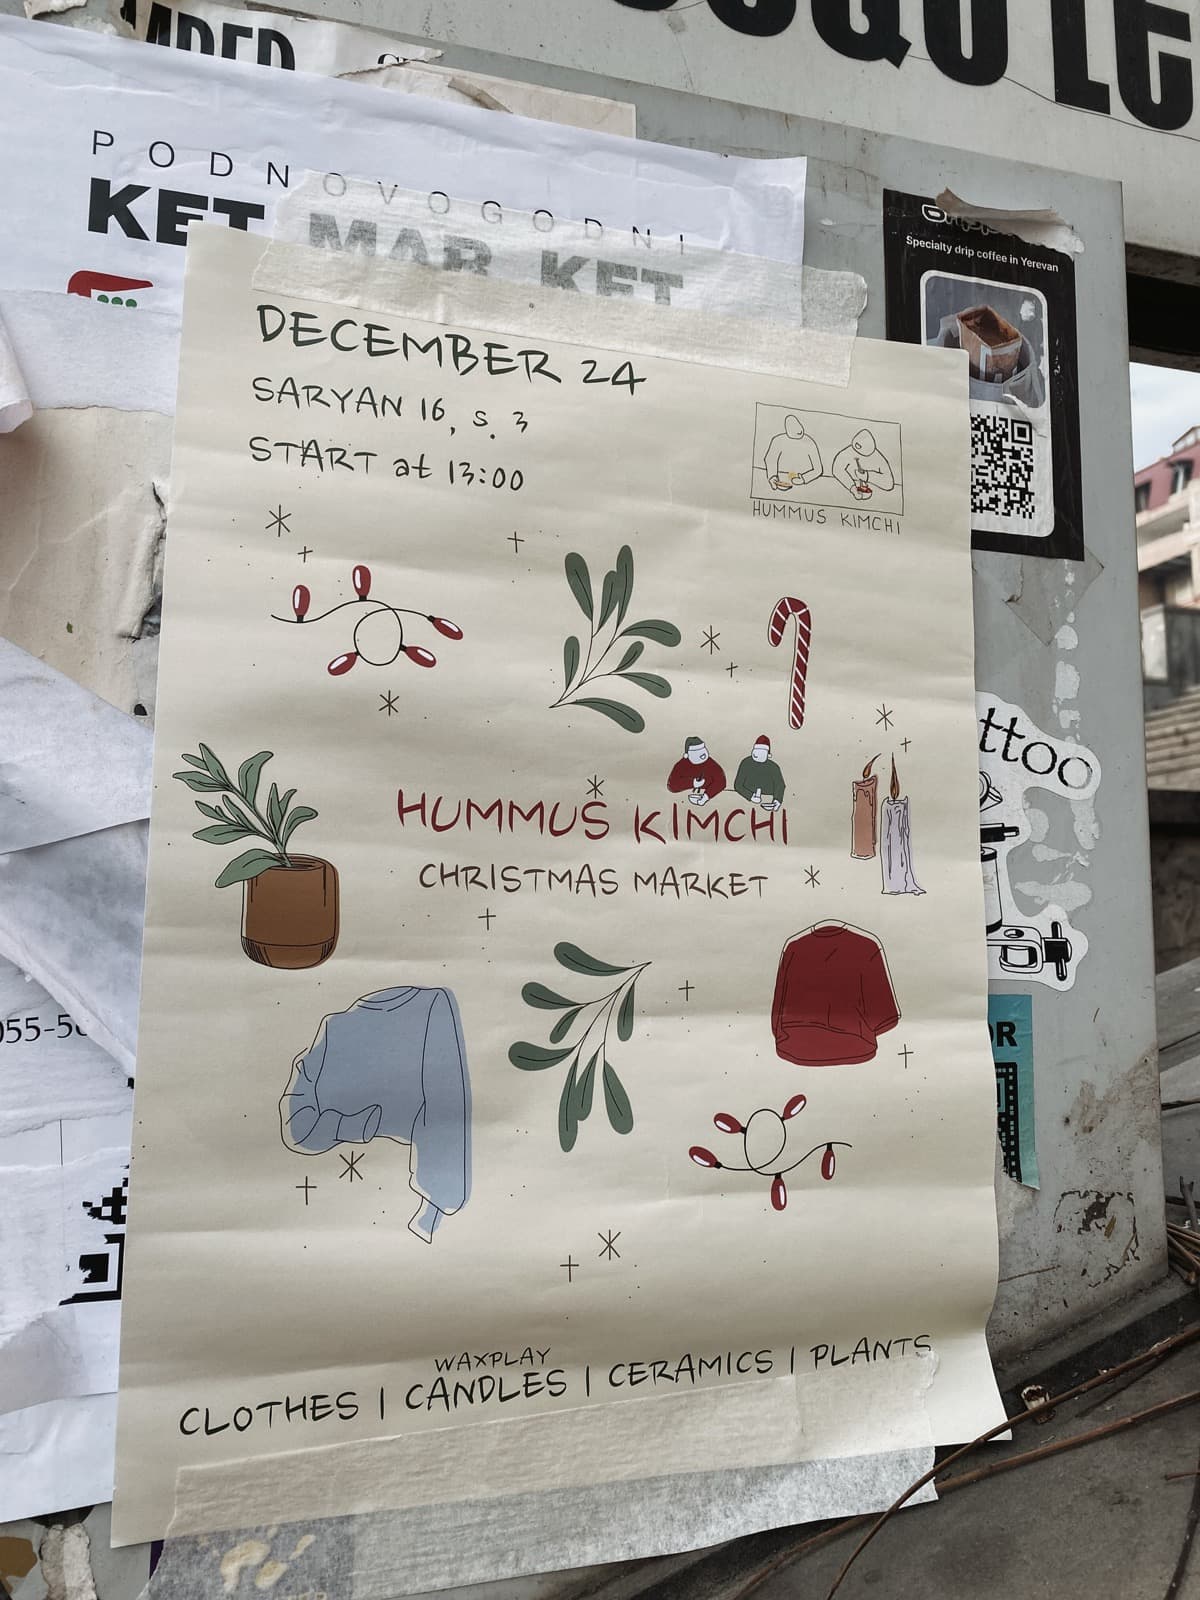 PODNOVOGODNI
KET MAR KET
DECEMBER 24
SARYAN 16, s. 3
START at 13:00
HUMMUS KIMCHI
HUMMUS KIMCHI
CHRISTMAS MARKET
WAXPLAY
CLOTHES | CANDLES | CERAMICS | PLANTS
Specialty drip coffee in Yerevan
ttoo
055-5
OR